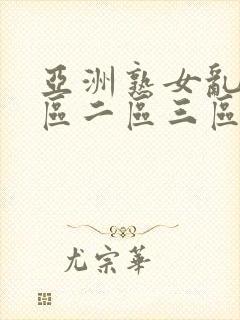 亞洲熟女亂
區二區三區
尤宗華